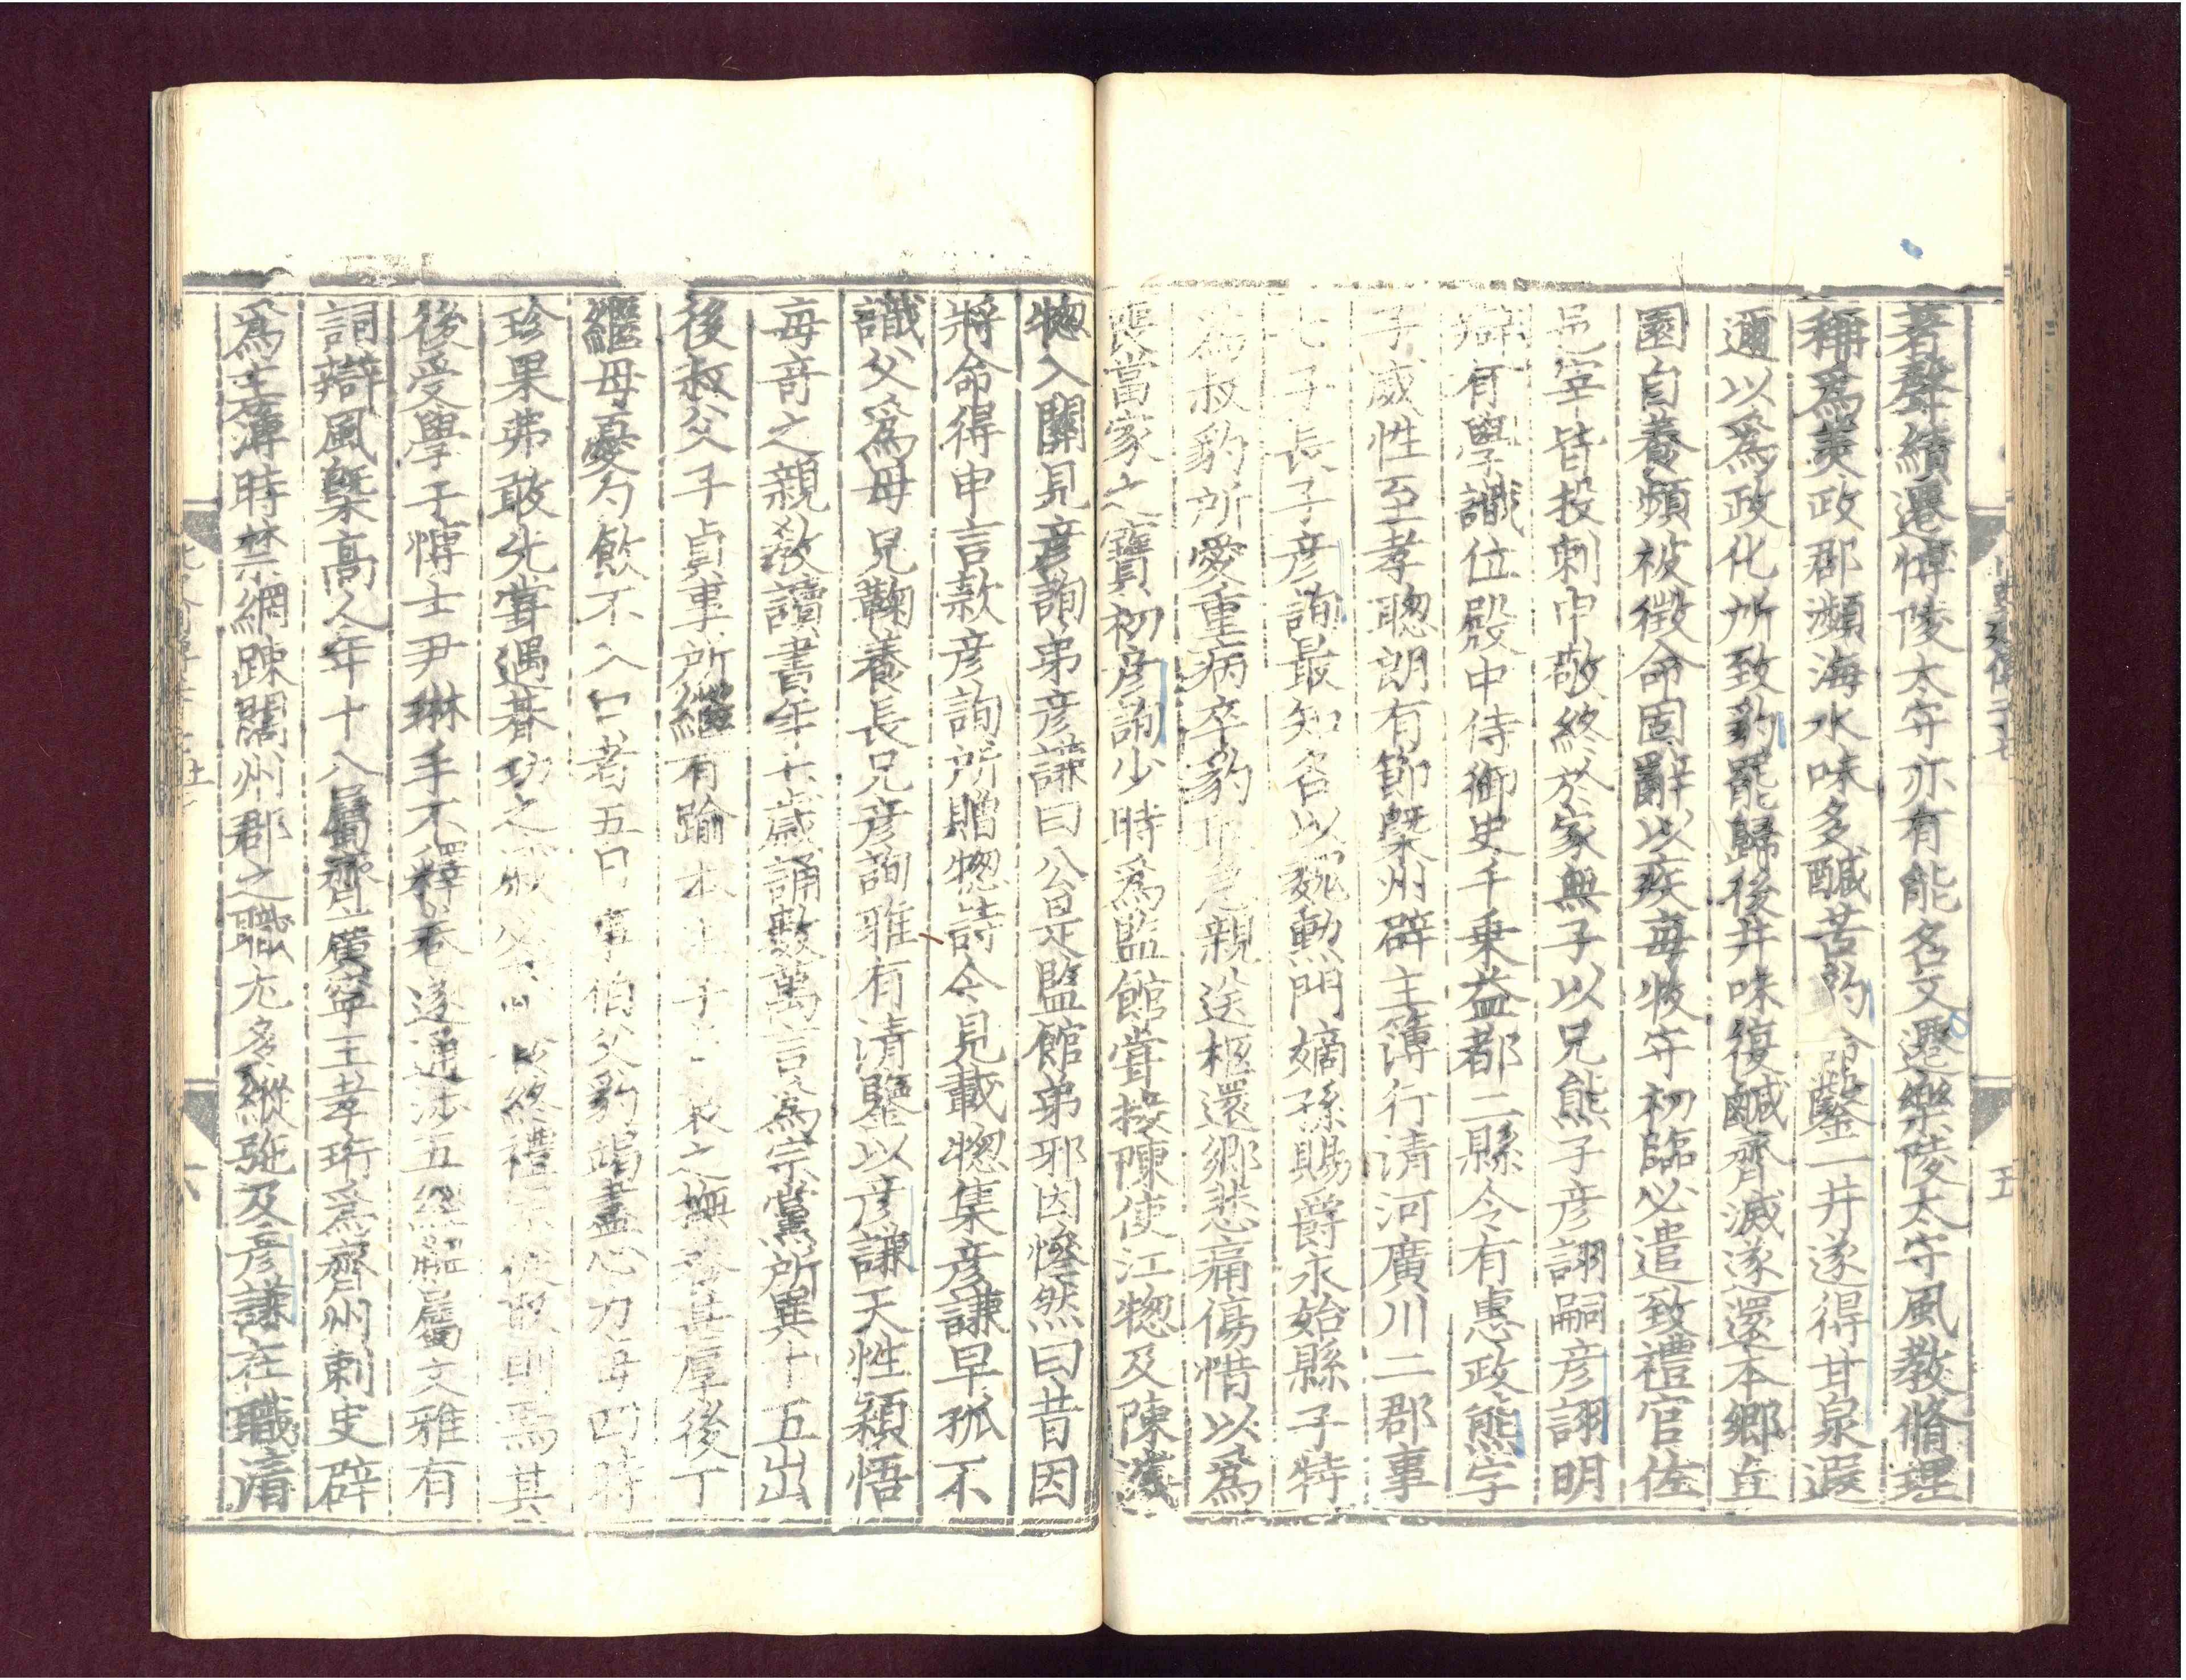 著聲績還愽陵太守亦有能名文遷樂陵太守風教脩理
稱爲美政郡瀕海水味多醎苦豹命鑿一井遂得甘泉遐
邇以爲政化所致豹罷歸後井味復鹹齊滅遂還本鄉丘
園自養頻被徵命固辭以疾每牧守初臨必遣致禮官佐
邑宰皆投刺申敬終於家無子以兄熊子彦詡嗣彦詡明
辯有學識位殿中侍御史千乗益都二縣令有惠政熊字
子威性至孝聰朗有節槩州辟主簿行清河廣川二郡事
七子長子彦詢最知名以魏勲門嫡孫賜爵永始縣子特
爲叔豹所愛重病卒豹親送柩還鄉悲痛傷惜以爲
喪當家之寶初彦詢少時爲監館嘗接陳使江惣及陳滅
惣入關見彦詢弟彦謙曰公是監館弟邪因慘然曰昔因
將命得申言款彦詢所贈惣詩今見載惣集彦謙早孤不
識父爲母兄鞠養長兄彦詢雅有清鑒以彦謙天性穎悟
每竒之親敎讀書年七歲誦數萬言爲宗黨所異十五出
後叔父子貞事所繼有踰本之撫養甚厚後丁
繼母憂勺飲不入口者五日事伯父豹竭盡心力每四時
珍果弗敢先嘗遇朞功之戚必終禮取則焉其
後受學于愽士尹琳手不釋卷遂通渉五經解屬文雅有
詞辯風槩高人年十八屬齊廣寧王孝珩爲齊州刺史辟
爲主薄時禁網踈闊州郡之職尤多縱㢮及彦謙在職清
五